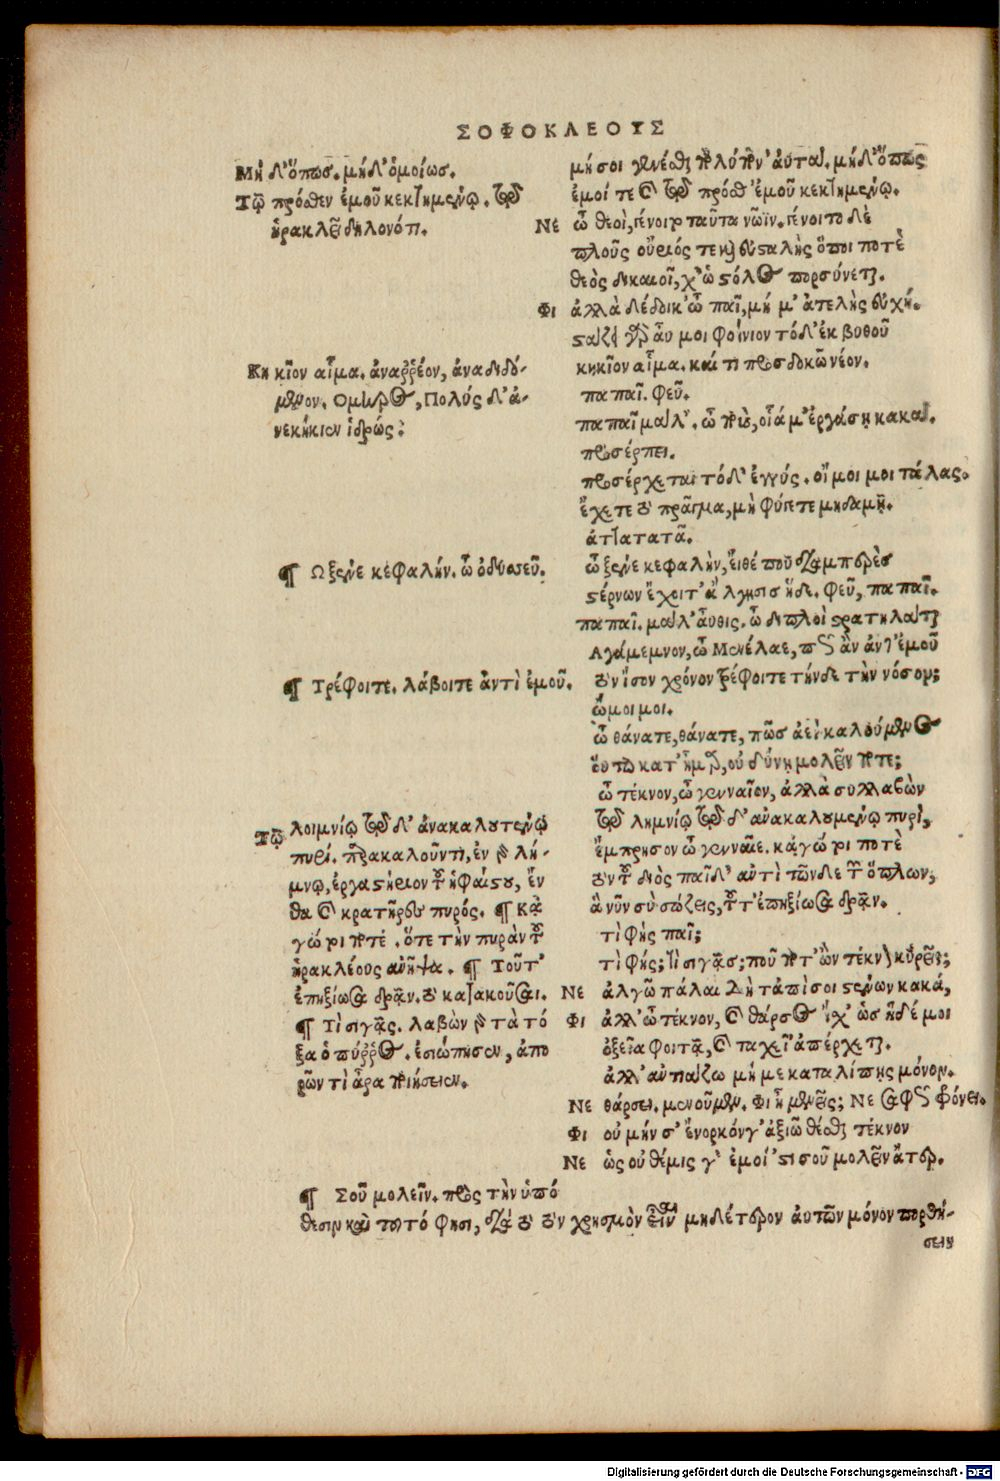 ΣΟΦΟΚΛΕΟΥΣ
Μὴ δ' ὅπως. μήδ' ὁμοίως.
Τῷ πρόσθεν ἐμοῦ κεκτημένῳ. τῷ
ἡρακλεῖ δηλονότι.
Κηκῖον αἷμα. ἀναῤῥέον, ἀναδιδό-
μενον. Ομηρος, Πολὺς δ' ἀ-
νεκήκιεν ἱδρώς:
¶ Ω ξένε κεφαλήν. ὦ ὀδυσσεῦ.
¶ Τρέφοιτε. λάβοιτε ἀντὶ ἐμοῦ.
Τῷ λοιμνίῳ τῷδ' ἀνακαλουμένῳ
πυρί. παρακαλοῦντι, ἐν τῇ λή-
μνῳ, ἐργαστήριον τοῦ ἡφαίστου, ἔν
θα καὶ κρατῆρες πυρός. ¶ Κἀ
γώ ροι ποτέ. ὅτε τὴν πυρὰν τοῦ
ἡρακλέους ἀνῆψα. ¶ Τοῦτ'
ἐπηξίωσα δρᾶν. οὐ κατακοῦσαι.
¶ Τί σιγᾷς. λαβὼν τὰ τό
ξα ὁ πύῤῥος. ἐσιώπησεν, ἀπο
ρῶν τί ἆρα ποιήσειεν.
μή σοι γενέσθαι πολύπον' αὐτὰ. μήδ' ὅπως
ἐμοί τε καὶ τῷ πρόσθ' ἐμοῦ κεκτημένῳ.
Νε ὦ θεοὶ, γένοιτο ταῦτα νῶϊν. γένοιτο δὲ
πλοῦς οὔριός τε κὐσταλὴς ὅποι ποτὲ
θεὸς δικαιοῖ, χ' ὡ στόλος πορσύνεται.
Φι ἀλλὰ δέδοικ' ὦ παῖ, μή μ' ἀτελὴς εὐχή.
στάζει γὰρ αὖ μοι φοίνιον τόδ' ἐκ βυθοῦ
κηκῖον αἷμα. καί τι προσδοκῶ νέον.
παπαῖ. φεῦ.
παπαῖ μάλ'. ὦ ποὺς, οἷά μ' ἐργάσῃ κακά.
προσέρπει.
προσέρχεται τόδ' ἐγγύς. οἴ μοι μοι τάλας.
ἔχετε τὸ πρᾶγμα, μὴ φύγητε μηδαμῇ.
ἀτταταταῖ.
ὦ ξένε κεφαλὴν, εἴθέ σου διαμπερὲς
στέρνων ἔχοιτ' ἄλγησις ἥδε. φεῦ, παπαῖ.
παπαῖ. μάλ' αὖθις. ὦ διπλοῖ στρατηλάται
Αγάμεμνον, ὦ Μενέλαε, πῶς ἂν ἀντ' ἐμοῦ
τὸν ἴσον χρόνον τρέφοιτε τήνδε τὴν νόσον;
ὤμοι μοι.
ὦ θάνατε, θάνατε, πῶς ἀεὶ καλούμενος
οὕτω κατ' ἦμαρ, οὐ δύνῃ μολεῖν ποτε;
ὦ τέκνον, ὦ γενναῖον, ἀλλὰ συλλαβὼν
τῷ λημνίῳ τῷδ' ἀνακαλουμένῳ πυρὶ,
ἔμπρησον ὦ γενναῖε. κἀγώ ροι ποτὲ
τὸν τοῦ διὸς παῖδ' ἀντὶ τῶνδε τῶν ὅπλων,
ἃ νῦν σὺ σώζεις, τοῦτ' ἐπηξίωσα δρᾶν.
τί φὴς παῖ;
τί φής; τί σιγᾷς; ποῦ ποτ' ὢν τέκνον κυρεῖς;
Νε ἀλγῶ πάλαι δὴ τἀπὶ σοι στένων κακά,
Φι ἀλλ' ὦ τέκνον, καὶ θάρσος ἴσχ' ὡς ἥδέ μοι
ὀξεῖα φοιτᾷ, καὶ ταχεῖ' ἀπέρχεται.
ἀλλ' ἀντιάζω μή με καταλίπῃς μόνον.
Νε θάρσει. μενοῦμεν. Φι ἦ μενεῖς; Νε σαφῶς φρόνει.
Φι οὐ μήν σ' ἔνορκόν γ' ἀξιῶ θέσθαι τέκνον
Νε ὡς οὐ θέμις γ' ἐμοί 'στι σοῦ μολεῖν ἄτερ.
¶ Σοῦ μολεῖν. πρὸς τὴν ὑπό
θεσιν καὶ τοῦτό φησι, διὰ τὸ τὸν χρησμὸν εἶναι μηδέτερον αὐτῶν μόνον πορθή-
σειν
Digitalisierung gefördert durch die Deutsche Forschungsgemeinschaft - DFG